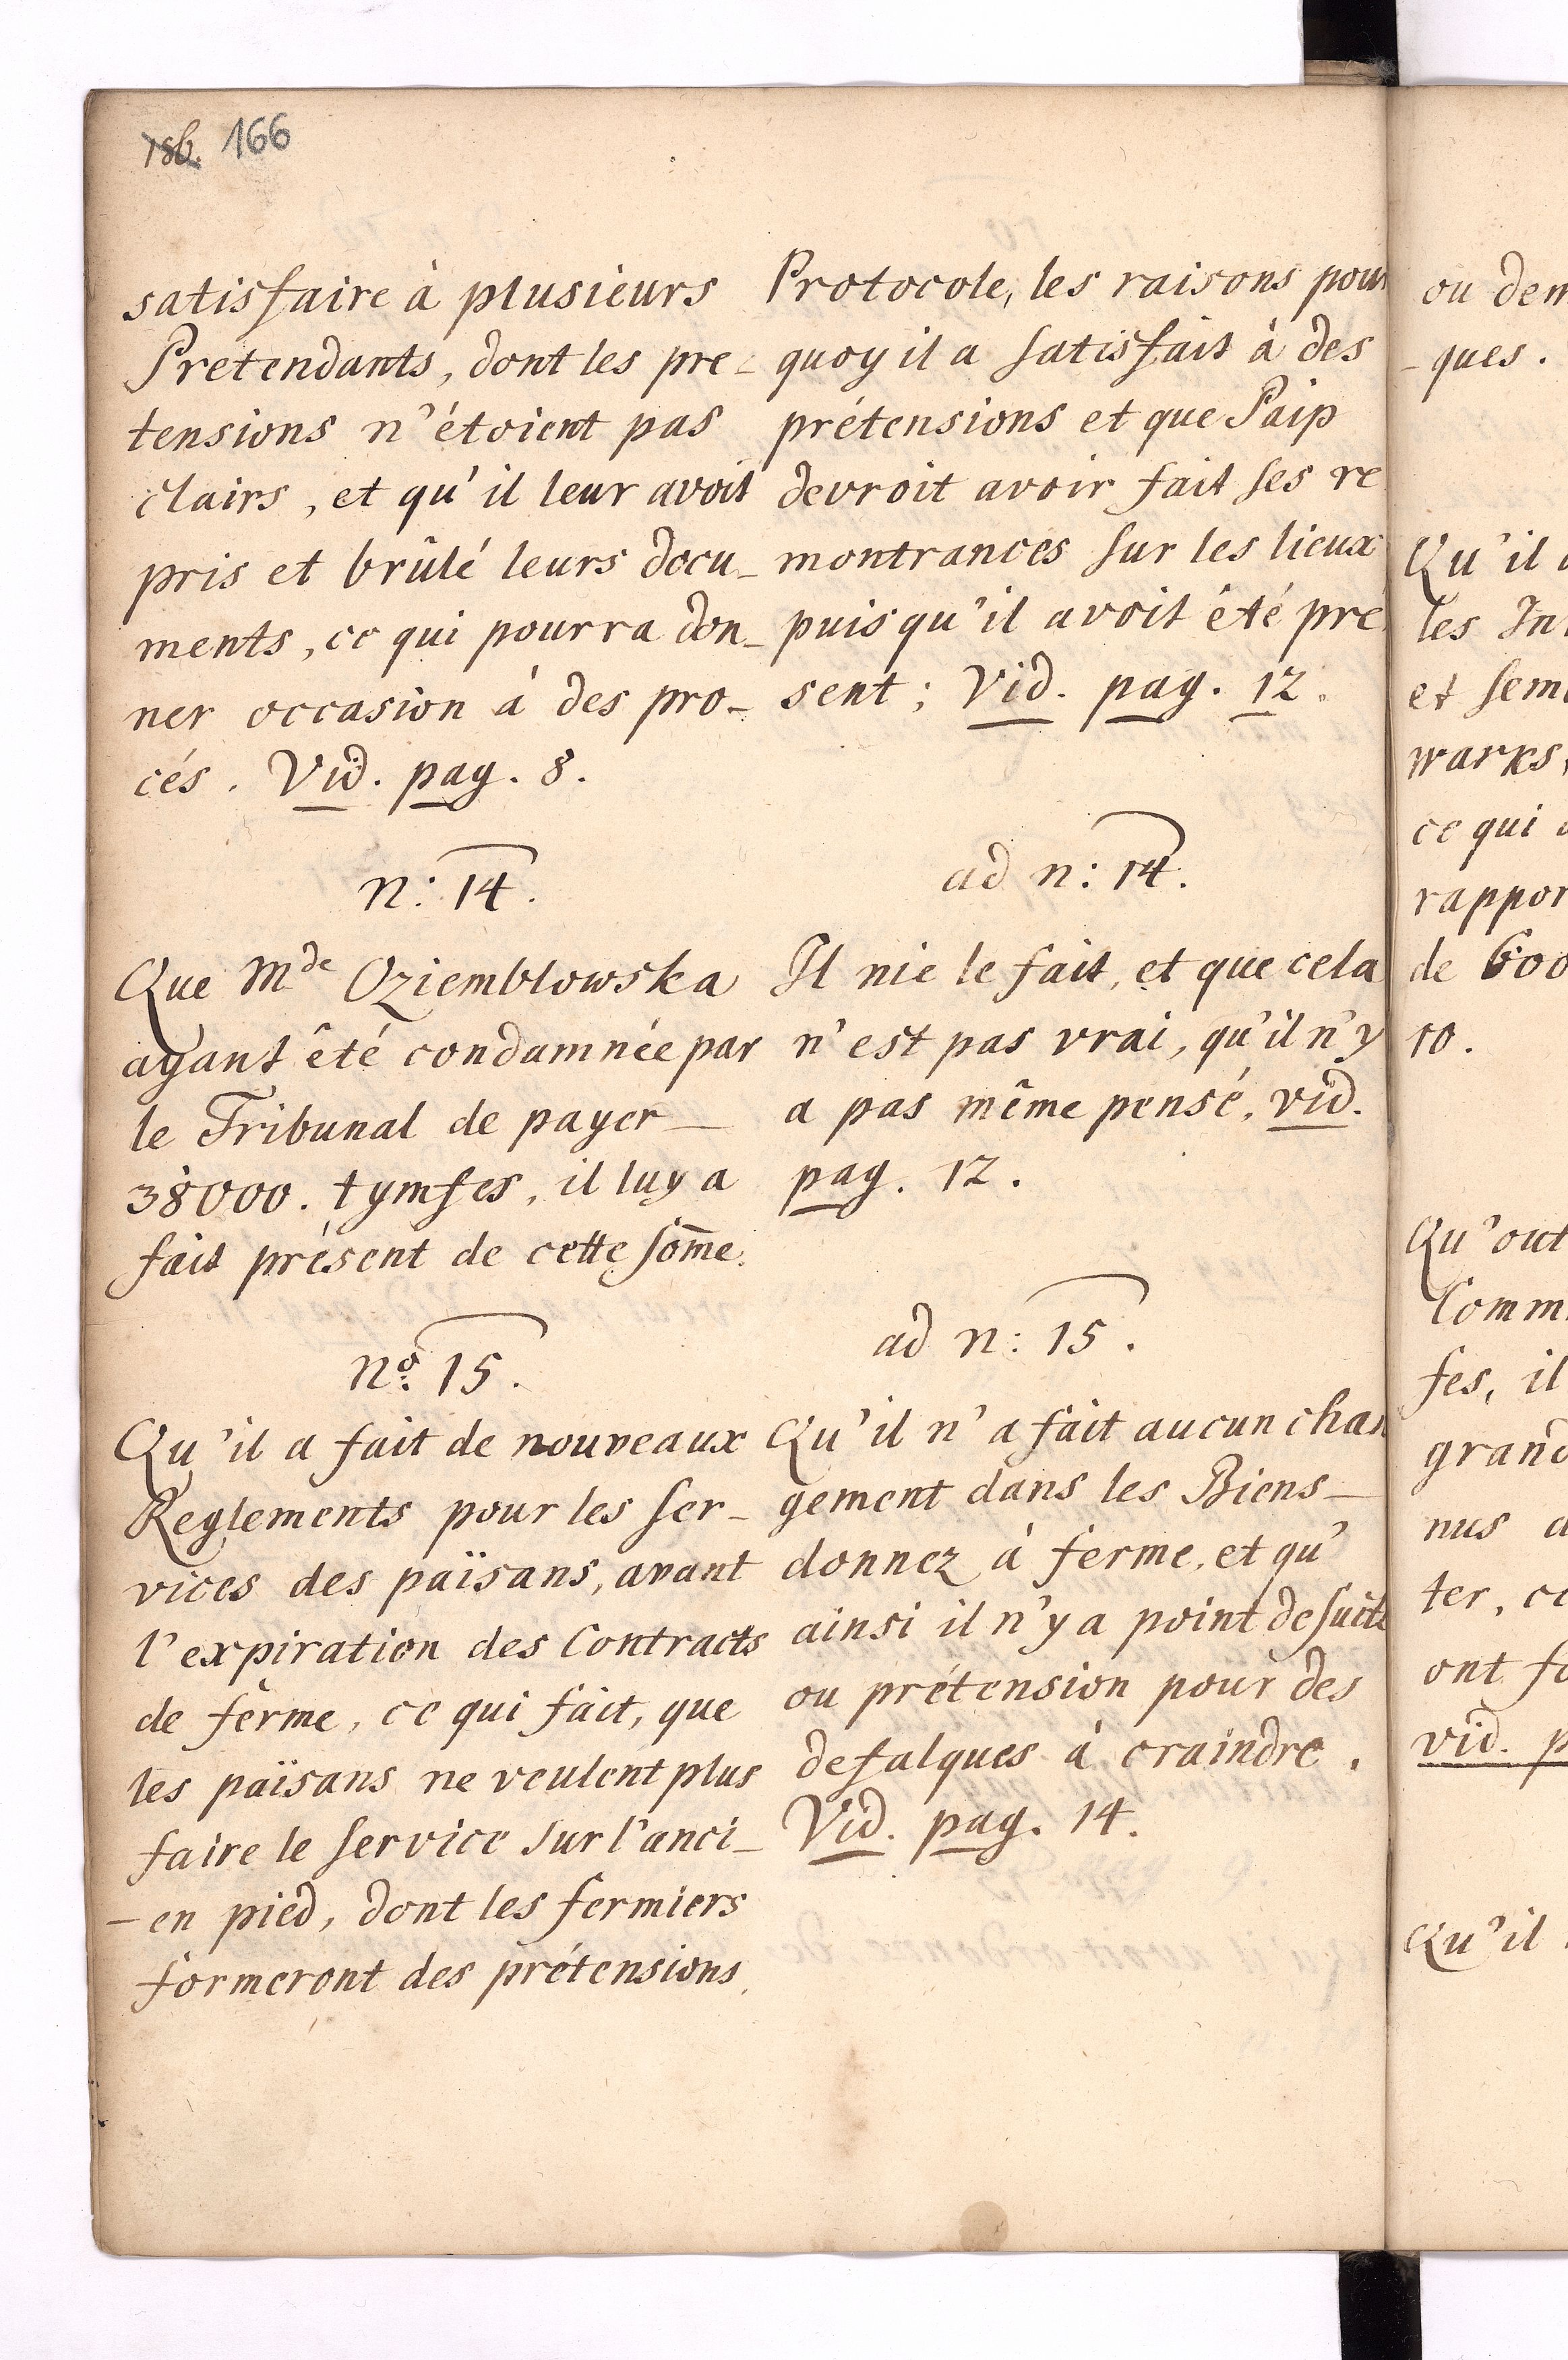 186. 166
satisfaire à plusieurs
Pretendants, dont les pre-
tensions n'étoient pas
clairs, et qu'il leur avoit
pris et brûlé leurs docu-
ments, ce qui pourra don-
ner occasion à des pro-
cés. Vid. pag. 8.
n: 14.
Que Mde Oziemblowska
ayant êté condamnée par
le Tribunal de payer
38000. tymfes, il luy a
fait présent de cette som̄e.
no. 15.
Qu'il a fait de nouveaux
Reglements pour les ser-
vices des païsans, avant
l'expiration des Contracts
de ferme, ce qui fait, que
les païsans ne veulent plus
faire le service sur l'anci-
-en pied, dont les fermiers
formeront des prétensions.
Protocole, les raisons pour
quoy il a satisfait à des
prétensions et que Paip
devroit avoir fait ses re
montrances sur les lieux
puisqu'il avoit été pré
sent; Vid. pag. 12.
ad n: 14.
Il nie le fait, et que cela
n'est pas vrai, qu'il n'y
a pas même pensé, vid.
pag. 12.
ad n: 15.
Qu'il n'a fait aucun chan
gement dans les Biens
donnez à ferme, et qu'
ainsi il n'y a point de suite
ou prétension pour des
defalques à craindre.
Vid. pag. 14.
ou dem
-ques.
Qu'il
les In
et sem
warks,
ce qui
rappor
de 600
10.
Qu'out
Comm
fes, il
grand
nus
ter, ce
ont fo
vid. p
Qu'il